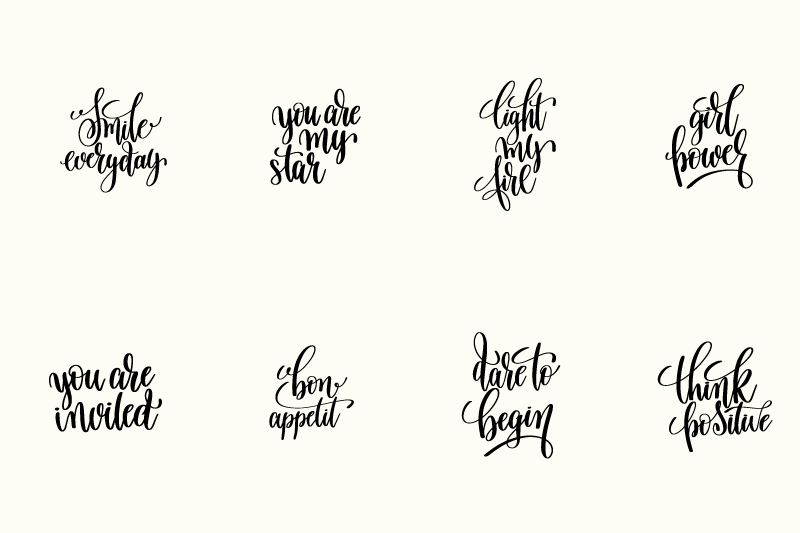 Smile
everyday
you are
my
star
light
my
fire
girl
power
you are
invited
bon
appetit
dare to
begin
think
positive